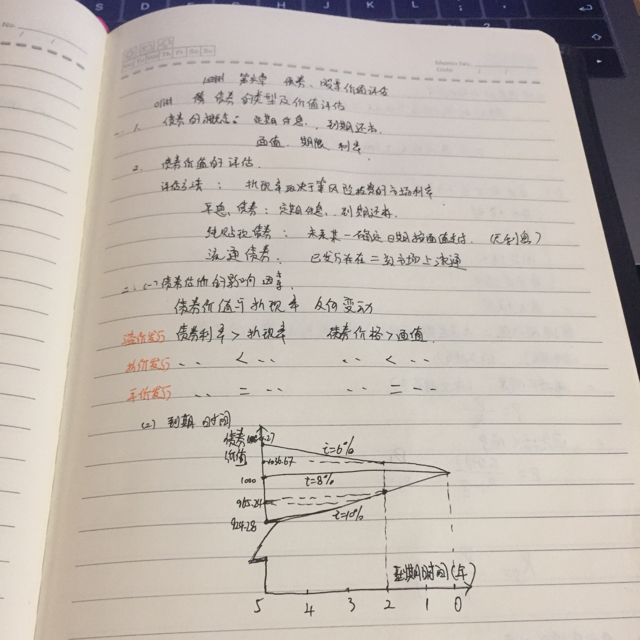 第六章 债券、股票价值评估
债券的类型及价值评估
一、1. 债券的概念：定期付息，到期还本.
面值、期限、利率
2. 债券价值的评估
评估方法：折现率取决于等风险投资的市场利率
平息债券：定期付息、到期还本.
纯贴现债券：未来某一确定日期按面值支付.（无利息）
流通债券：已发行并在二级市场上流通
二、(一)债券估价的影响因素
债券价值与折现率反向变动
溢价发行 债券利率 > 折现率 债券价格 > 面值.
折价发行 ‥ ‥ < ‥ ‥ ‥ ‥ < ‥
平价发行 ‥ ‥ = ‥ ‥ ‥ ‥ = ‥
(二) 到期时间
债券
价值
i=6%
1036.67
1000 i=8%
965.24
924.28 i=10%
到期时间(年)
5 4 3 2 1 0